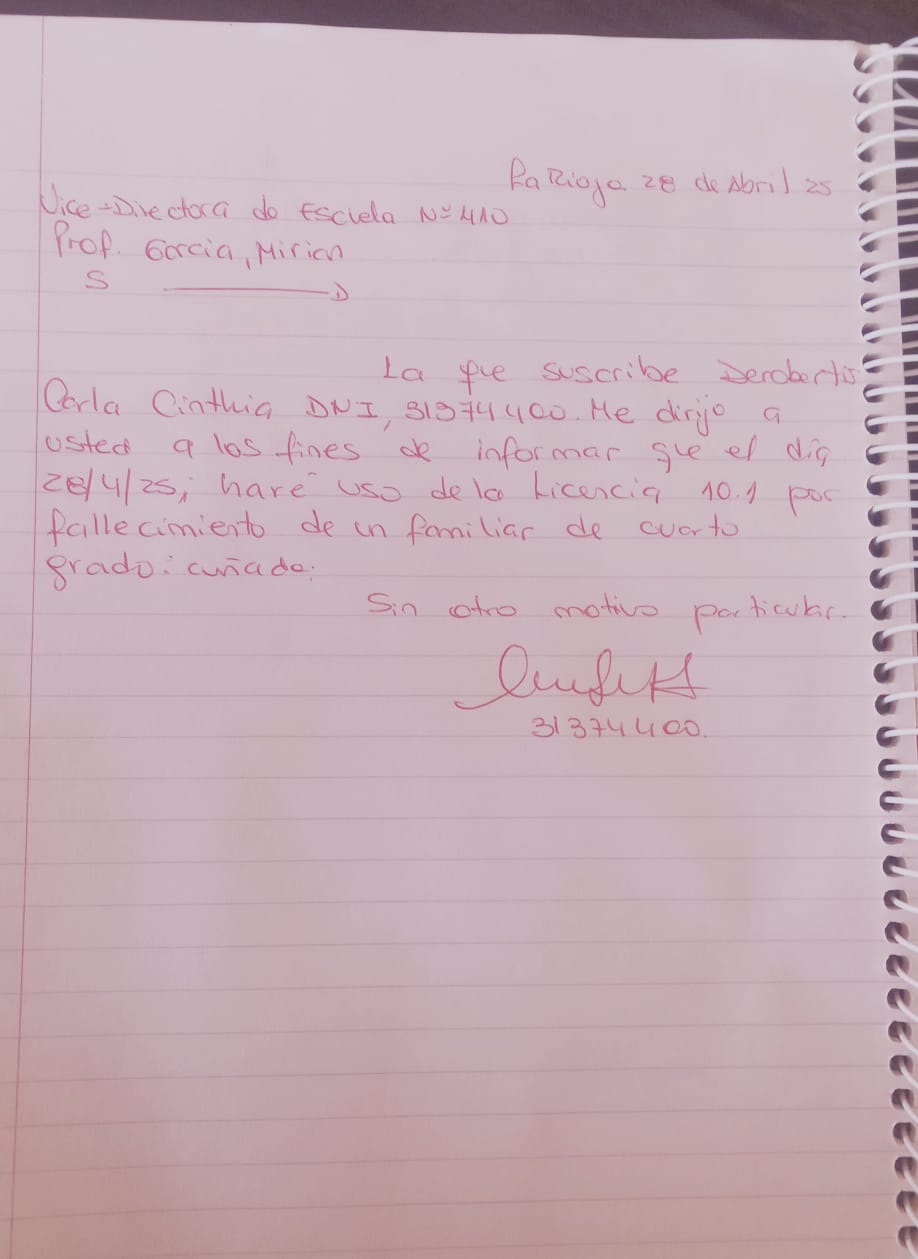 La Rioja 28 de Abril 25
Vice-Directora de Escuela Nº 410
Prof. Garcia, Mirian
S ————— D
La que suscribe Derobertis
Carla Cinthia DNI, 31374400. Me dirijo a
usted a los fines de informar que el día
28/4/25; haré uso de la Licencia 10.1 por
fallecimiento de un familiar de cuarto
grado: cuñado.
Sin otro motivo particular.
31374400.